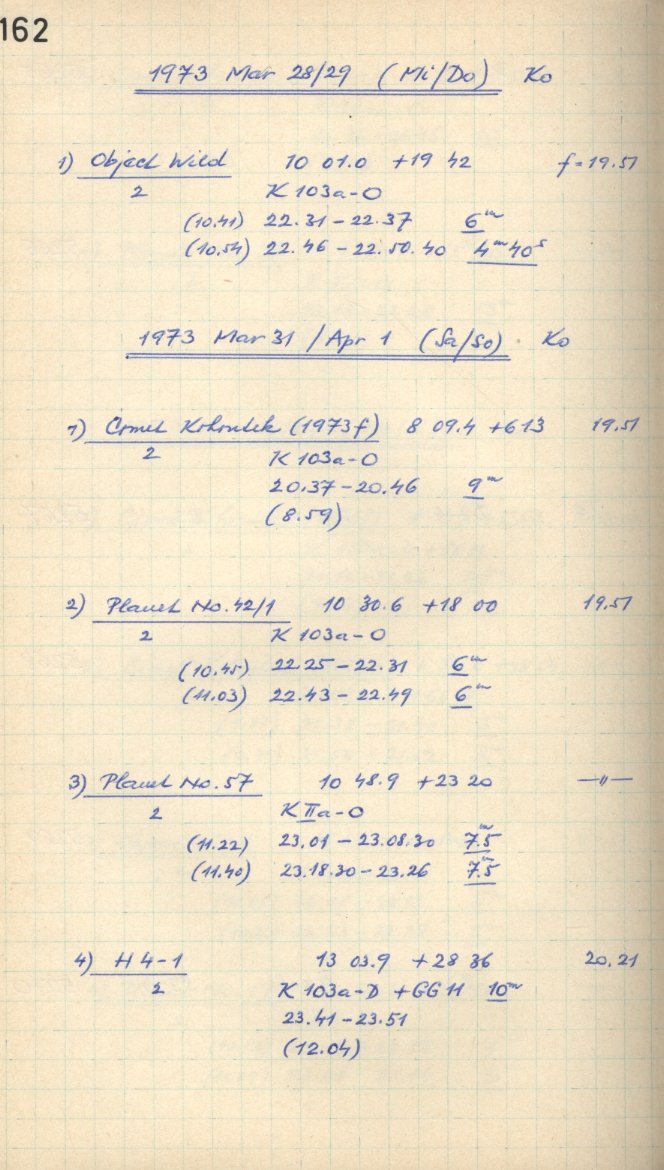 162
1973 Mar 28/29 (Mi/Do) Ko
1) Object Wild 10 01.0 +19 42 f=19.51
2 K 103a-O
(10.41) 22.31-22.37 6m
(10.54) 22.46-22.50.40 4m40s
1973 Mar 31/Apr 1 (Sa/So) Ko
1) Comet Kohoutek (1973f) 8 09.4 +6 13 19.51
2 K 103a-O
20.37-20.46 9m
(8.59)
2) Planet No.42/1 10 30.6 +18 00 19.51
2 K 103a-O
(10.45) 22.25-22.31 6m
(11.03) 22.43-22.49 6m
3) Planet No.57 10 48.9 +23 20 —"—
2 K IIa-O
(11.22) 23.01-23.08.30 7m.5
(11.40) 23.18.30-23.26 7m.5
4) H 4-1 13 03.9 +28 36 20.21
2 K 103a-D +GG 11 10m
23.41-23.51
(12.04)